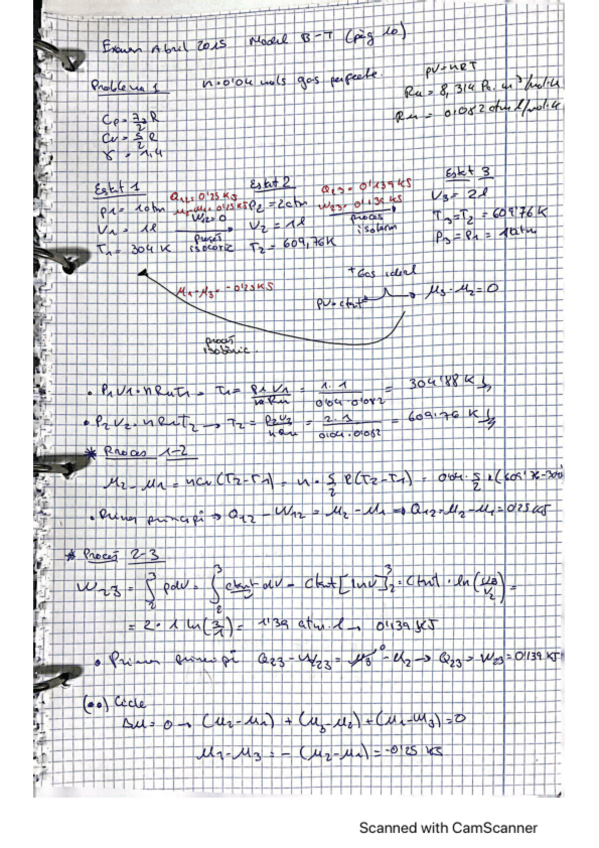 Examen Abril 2015 Model B-T (pàg 10)
Problema 1 n=0'04 mols gas perfecte.
PV=nRT
Ru = 8,314 Pa.m³/mol·K
Ru = 0.082 atm l/mol·K
Cp = 7/2 R
Cv = 5/2 R
γ = 1,4
Estat 1
P1 = 1atm
V1 = 1l
T1 = 304 K
Q12 = 0'25 KJ
W12=0
procés isocoric
Estat 2
P2 = 2atm
V2 = 1l
T2 = 609,76K
Q23 = 0'139 KJ
W23 = 0'139 KJ
procés isoterm
Estat 3
V3 = 2l
T3=T2 = 609'76 K
P3 = P1 = 1atm
U1-U3 = -0'25 KJ
procés isobàric.
Gas ideal
PV=ctnt
U3-U2=0
• P1V1 = nRuT1 → T1 = P1V1/nRu = 1·1/0'04·0'082 = 304'88 K
• P2V2 = nRuT2 → T2 = P2V2/nRu = 2·1/0'04·0'082 = 609'76 K
* Procés 1-2
U2-U1 = nCv(T2-T1) = n·5/2 R(T2-T1) = 0'04·5/2
• Primer principi → Q12 - W12 = U2-U1 → Q12 = U2-U1 = 0'25 KJ
* Procés 2-3
W23 = ∫ pdv = ∫ ctnt/v dv = Ctnt [lnv] = Ctnt · ln(V3/V2) =
= 1'39 atm.l → 0'139 KJ
• Primer principi Q23-W23 = U3-U2 → Q23 = W23 = 0'139 KJ
Cicle
ΔU=0 → (U2-U1) + (U3-U2) + (U1-U3) = 0
U1-U3 = -(U2-U1) = -0'25 KJ
Scanned with CamScanner